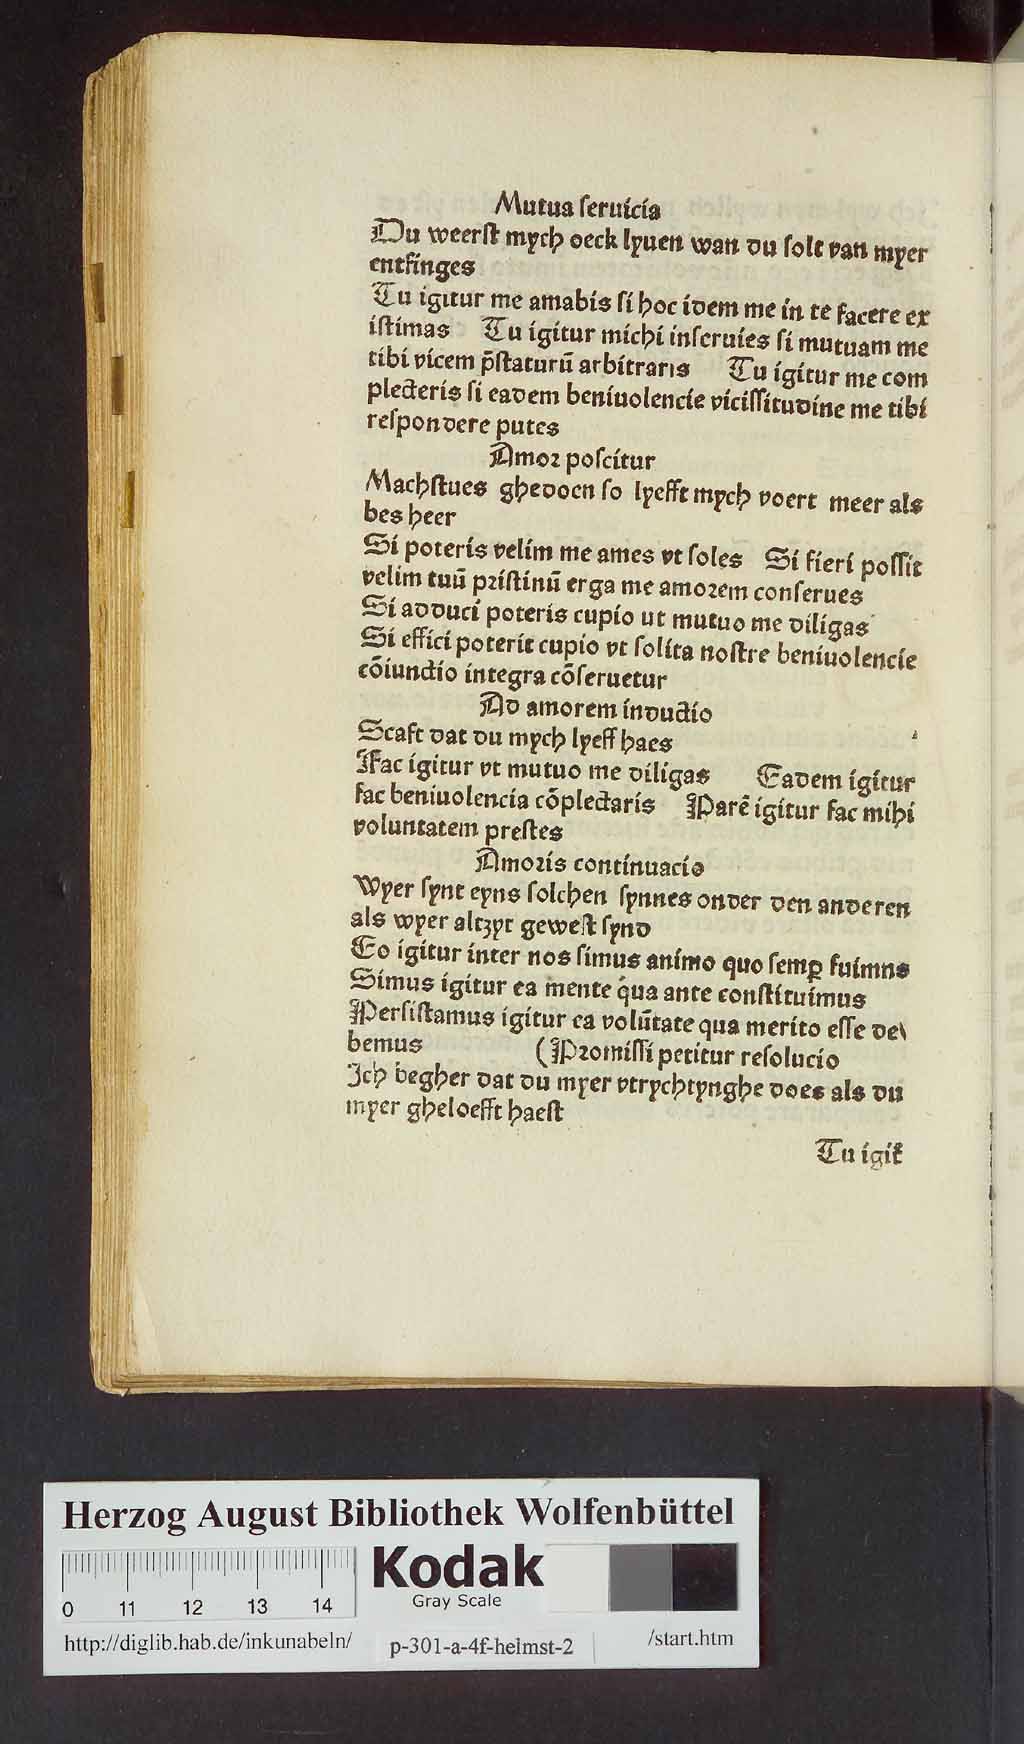 Mutua ſeruicia
Du weerſt mych oeck lyuen wan du ſolt van myer
entfinges
Tu igitur me amabis ſi hoc idem me in te facere ex
iſtimas Tu igitur michi inſeruies ſi mutuam me
tibi vicem p̄ſtaturū arbitraris Tu igitur me com
plecteris ſi eadem beniuolencie viciſſitudine me tibi
reſpondere putes
Amoꝛ poſcitur
Machſtues ghedoen ſo lyefft mych voert meer als
bes heer
Si poteris velim me ames vt ſoles Si fieri poſſit
velim tuū pꝛiſtinū erga me amoꝛem conſerues
Si adduci poteris cupio ut mutuo me diligas
Si effici poterit cupio vt ſolita noſtre beniuolencie
cōiunctio integra cōſeruetur
Ad amorem inductio
Scaft dat du mych lyeff haes
Fac igitur vt mutuo me diligas Eadem igitur
fac beniuolencia cōplectaris Parē igitur fac mihi
voluntatem preſtes
Amoꝛis continuacio
Wyer ſynt eyns ſolchen ſynnes onder den anderen
als wyer altzyt geweſt ſynd
Eo igitur inter nos ſimus animo quo ſemꝑ fuimns
Simus igitur ea mente q̇ua ante conſtituimus
Perſiſtamus igitur ea volūtate qua merito eſſe de\
bemus (Pꝛomiſſi petitur reſolucio
Ich begher dat du myer vtrychtynghe does als du
myer gheloefft haeſt
Tu igit̄
Herzog August Bibliothek Wolfenbüttel
Kodak
Gray Scale
0 11 12 13 14
http://diglib.hab.de/inkunabeln/ p-301-a-4f-helmst-2 /start.htm